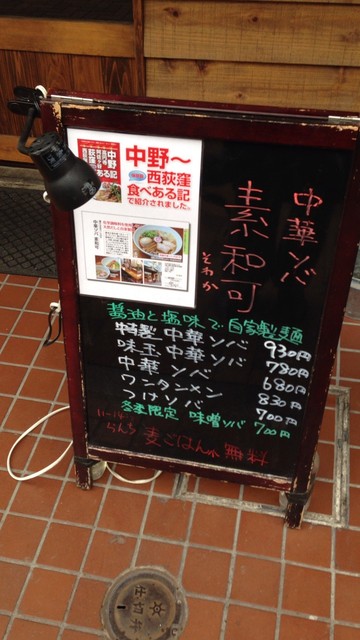 中野～
西荻窪
食べある記
で紹介されました。
中華ソバ
素和可
そわか
醤油と塩味で自家製麺
特製中華ソバ 930円
味玉中華ソバ 780円
中華ソバ 680円
ワンタンメン 830円
つけソバ 700円
冬季限定 味噌ソバ 700円
11-14
らんち 麦ごはん小無料